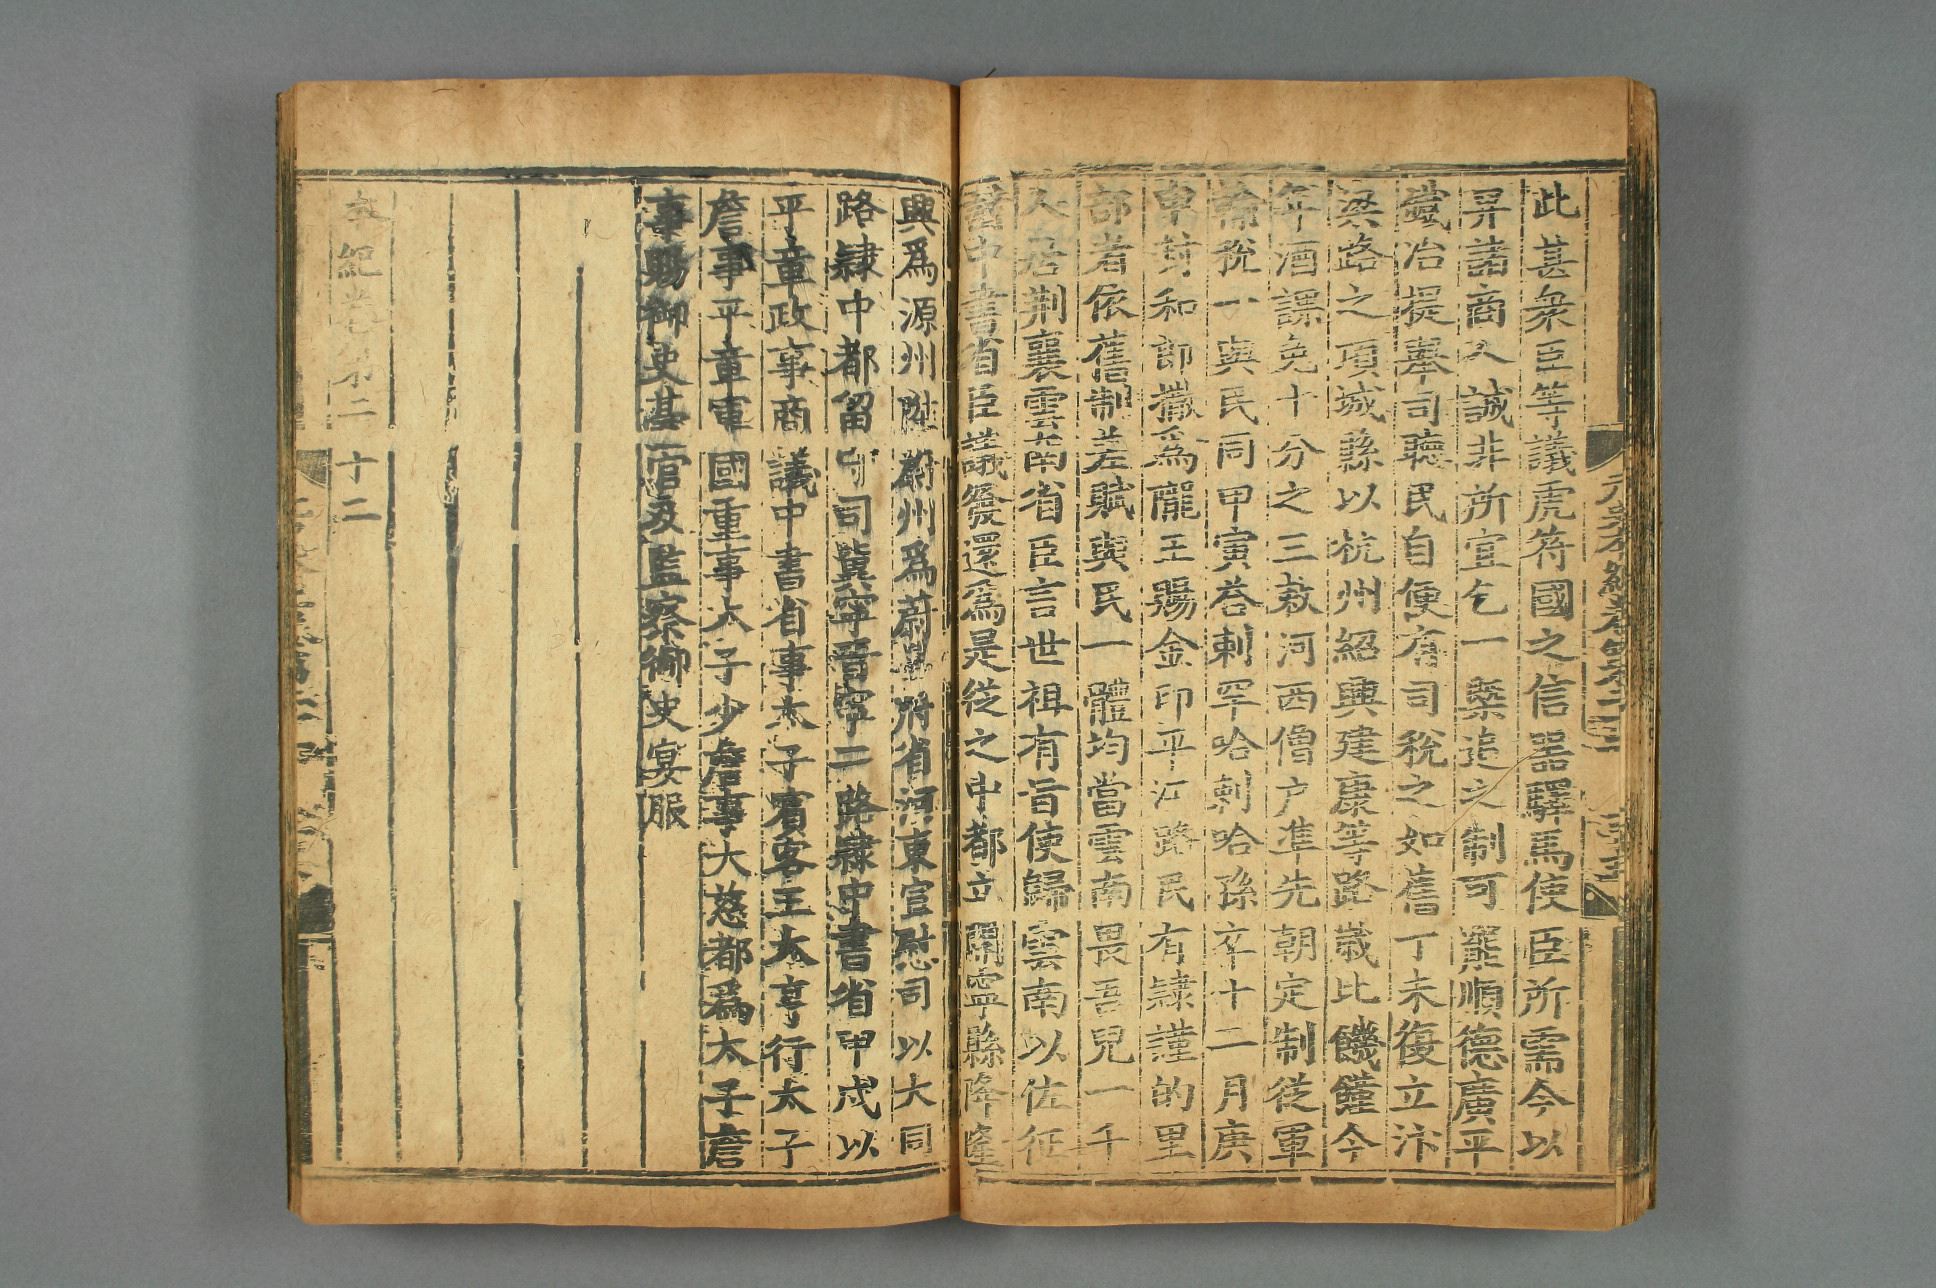 此甚衆臣等議虎符國之信器驛馬使臣所需今以
畀諸商人誠非所宜乞一槩追之制可罷順德廣平
鐵冶提舉司聽民自便有司稅之如舊丁未復立汴
梁路之項城縣以杭州紹興建康等路歲比饑饉今
年酒課免十分之三敕河西僧户準先朝定制從軍
輸稅一與民同甲寅荅剌罕哈剌哈孫卒十二月庚
申封和郎撒爲隴王賜金印平江路民有隸謹的里
部者依舊制差賦與民一體均當雲南畏吾兒一千
人居荆襄雲南省臣言世祖有旨使歸雲南以佐征
討中書省臣議發還爲是從之中都立開寧縣降隆
興爲源州陞蔚州爲蔚昌府省河東宣慰司以大同
路隸中都留守司冀寧晉寧二路隸中書省甲戌以
平章政事商議中書省事太子賓客王太亨行太子
詹事平章軍國重事太子少詹事大慈都爲太子詹
事賜御史臺官及監察御史宴服
本紀卷第二十二